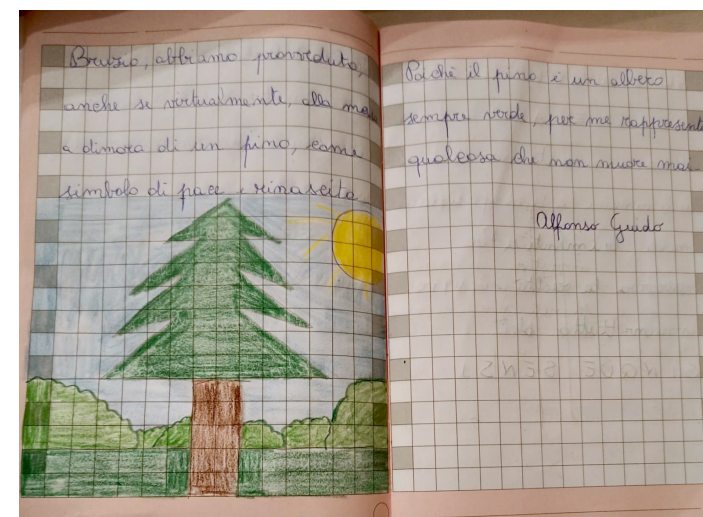 Bruzio, abbiamo provveduto,
anche se virtualmente, alla mes
a dimora di un pino, come
simbolo di pace e rinascita
Poichè il pino è un albero
sempre verde, per me rappresenta
qualcosa che non muore mai.
Alfonso Guido